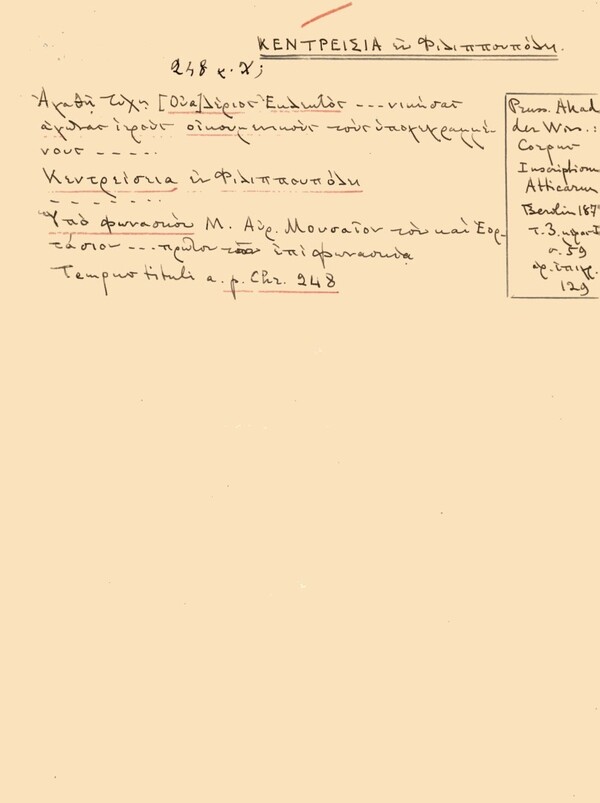 ΚΕΝΤΡΕΙΣΙΑ ἐν Φιλιππουπόλη.
248 μ.Χ;
Ἀγαθῇ τύχη [Οὐα]λέριος Ἐκλεκτὸς --- νικήσας
ἀγῶνας ἱεροὺς οἰκουμενικοὺς τοὺς ὑπογεγραμμέ-
νους - - - - -
Κεντρείσεια ἐν Φιλιππουπόλη
- - - - - ...
Ὑπὸ φωνασκὸν Μ. Αὐρ. Μουσαῖον τὸν καὶ Ἑορ-
τάσιον --- πρῶτον ἐπὶ φωνασκίᾳ
Tempus tituli a. p. Chr. 248
Preuss. Akad
der Wiss.:
Corpus
Inscriptionum
Atticarum
Berlin 187
τ. 3.
σ. 59
ἀρ. ἐπιγρ.
129